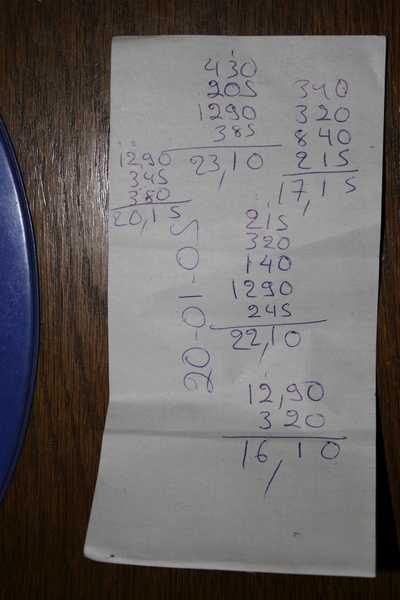 430
205
1290
385
23,10
340
320
840
215
17,15
1290
345
380
20,15
215
320
140
1290
245
22,10
20-01-05
12,90
320
16,10